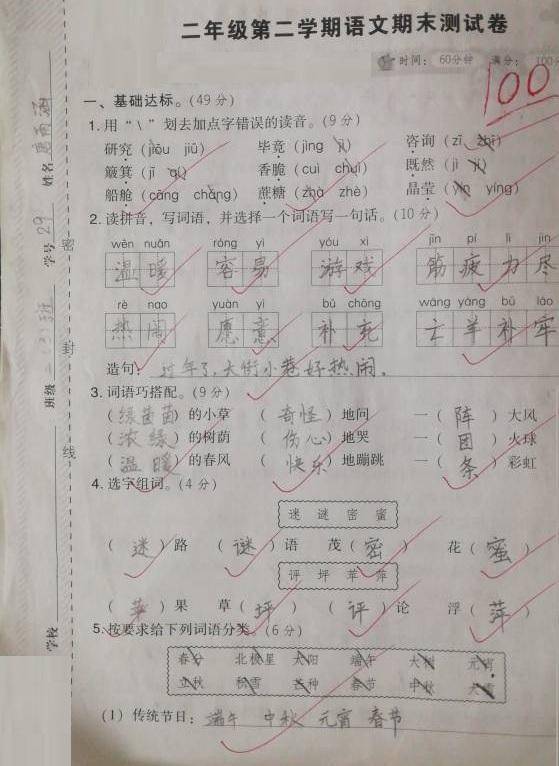 二年级第二学期语文期末测试卷
时间: 60分钟 满分: 100分
100
一、基础达标。(49分)
1.用“\”划去加点字错误的读音。(9分)
研究(jiōu jiū) 毕竟(jìng jì) 咨询(zī zhī)
簸箕(jī qí) 香脆(cuì chuì) 既然(jì jí)
船舱(cāng chāng) 蔗糖(zhà zhè) 晶莹(yín yíng)
2.读拼音，写词语，并选择一个词语写一句话。(10分)
wēn nuǎn róng yì yóu xì jīn pí lì jìn
温暖 容易 游戏 筋疲力尽
rè nao yuàn yì bǔ chōng wáng yáng bǔ láo
热闹 愿意 补充 亡羊补牢
造句: 过年了,大街小巷好热闹。
3.词语巧搭配。(9分)
(绿茵茵)的小草 (奇怪)地问 一(阵)大风
(浓绿)的树荫 (伤心)地哭 一(团)火球
(温暖)的春风 (快乐)地蹦跳 一(条)彩虹
4.选字组词。(4分)
迷 谜 密 蜜
(迷)路 (谜)语 茂(密) 花(蜜)
评 坪 苹 萍
(苹)果 草(坪) (评)论 浮(萍)
5.按要求给下列词语分类。(6分)
春分 北极星 太阳 端午 大 元宵
立秋 芒种 春节 中秋
(1)传统节日: 端午 中秋 元宵 春节
学校
班级 二(3)班
学号 29
姓名
密
封
线